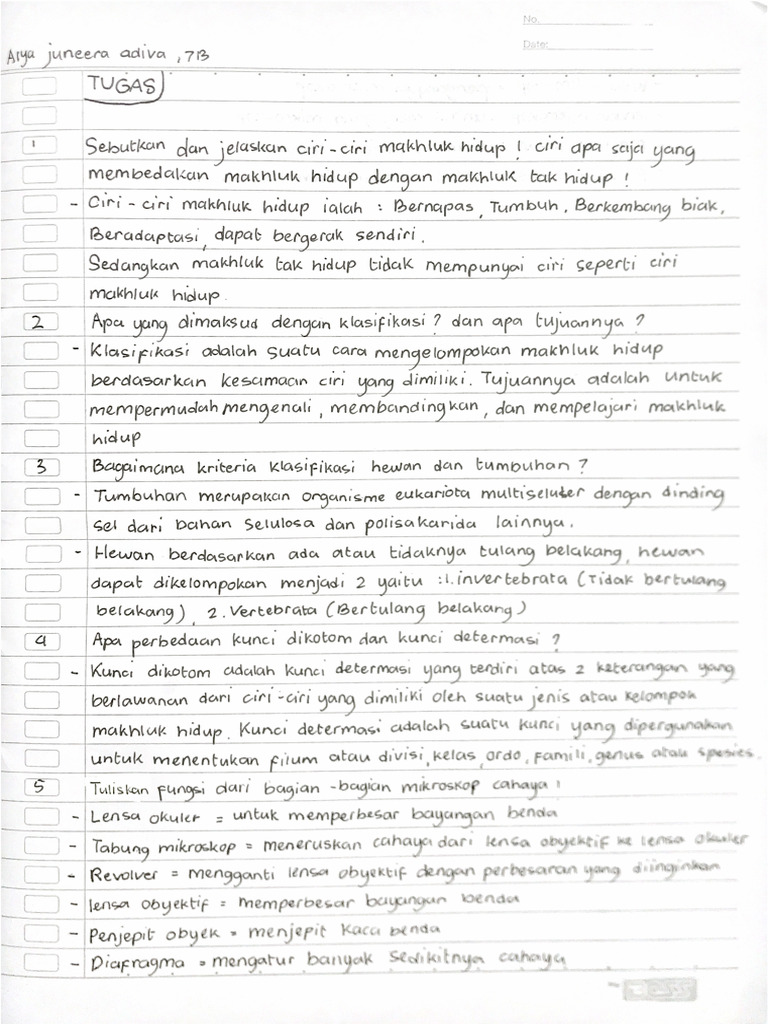 No.
Date:
Arya juneera adiva, 7B
TUGAS
1 Sebutkan dan jelaskan ciri-ciri makhluk hidup! ciri apa saja yang
membedakan makhluk hidup dengan makhluk tak hidup!
- Ciri-ciri makhluk hidup ialah : Bernapas, Tumbuh, Berkembang biak,
Beradaptasi, dapat bergerak sendiri.
Sedangkan makhluk tak hidup tidak mempunyai ciri seperti ciri
makhluk hidup.
2 Apa yang dimaksud dengan klasifikasi? dan apa tujuannya?
- Klasifikasi adalah suatu cara mengelompokan makhluk hidup
berdasarkan kesamaan ciri yang dimiliki. Tujuannya adalah untuk
mempermudah mengenali, membandingkan, dan mempelajari makhluk
hidup
3 Bagaimana kriteria klasifikasi hewan dan tumbuhan?
- Tumbuhan merupakan organisme eukariota multiseluler dengan dinding
sel dari bahan selulosa dan polisakarida lainnya.
- Hewan berdasarkan ada atau tidaknya tulang belakang, hewan
dapat dikelompokan menjadi 2 yaitu : 1. invertebrata (Tidak bertulang
belakang), 2. Vertebrata (Bertulang belakang)
4 Apa perbedaan kunci dikotom dan kunci determasi?
- Kunci dikotom adalah kunci determasi yang terdiri atas 2 keterangan yang
berlawanan dari ciri-ciri yang dimiliki oleh suatu jenis atau kelompok
makhluk hidup. Kunci determasi adalah suatu kunci yang dipergunakan
untuk menentukan filum atau divisi, kelas, ordo, famili, genus atau spesies.
5 Tuliskan fungsi dari bagian-bagian mikroskop cahaya!
- Lensa okuler = untuk memperbesar bayangan benda
- Tabung mikroskop = meneruskan cahaya dari lensa obyektif ke lensa okuler
- Revolver = mengganti lensa obyektif dengan perbesaran yang diinginkan
- lensa obyektif = memperbesar bayangan benda
- Penjepit obyek = menjepit kaca benda
- Diafragma = mengatur banyak sedikitnya cahaya